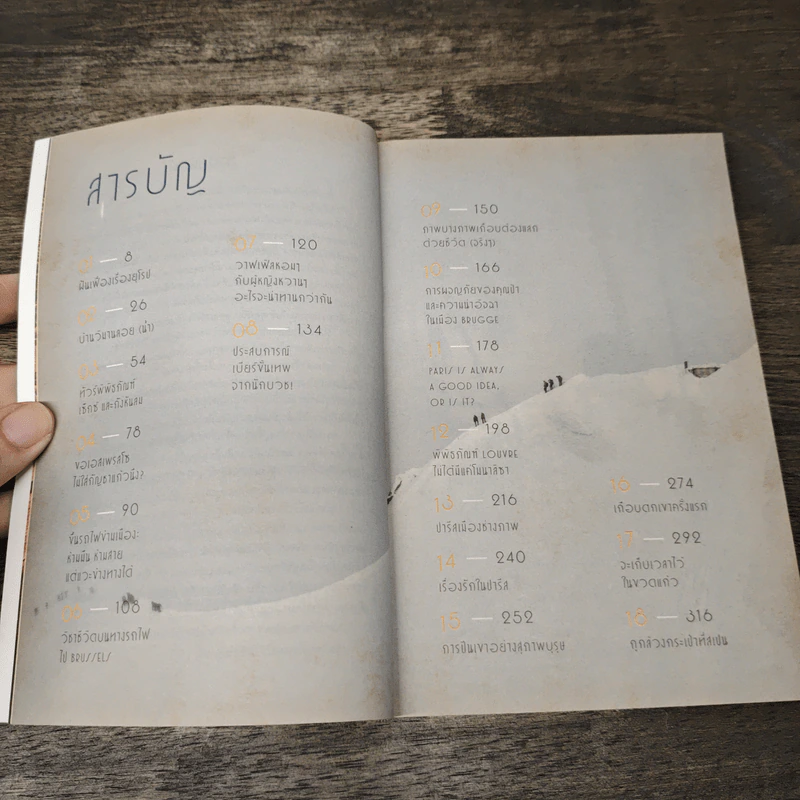 สารบัญ
01 — 8
ฝันเฟื่องเรื่องยุโรป
02 — 26
บ้านวิมานลอย (น้ำ)
03 — 54
ทัวร์พิพิธภัณฑ์
เซ็กซ์ และกังหันลม
04 — 78
ขอเอสเพรสโซ
ไม่ใส่กัญชาแก้วนึง?
05 — 90
ขึ้นรถไฟข้ามเมือง:
ห้ามมึน ห้ามสาย
แต่แวะข้างทางได้
06 — 108
วิชาชีวิตบนทางรถไฟ
ไป BRUSSELS
07 — 120
วาฟเฟิลหอมๆ
กับผู้หญิงหวานๆ
อะไรจะน่าทานกว่ากัน
08 — 134
ประสบการณ์
เบียร์ขั้นเทพ
จากนักบวช!
09 — 150
ภาพบางภาพเกือบต้องแลก
ด้วยชีวิต (จริงๆ)
10 — 166
การผจญภัยของคุณป้า
และความน่าอิจฉา
ในเมือง BRUGGE
11 — 178
PARIS IS ALWAYS
A GOOD IDEA,
OR IS IT?
12 — 198
พิพิธภัณฑ์ LOUVRE
ไม่ได้มีแค่โมนาลิซา
13 — 216
ปารีสเมืองช่างภาพ
14 — 240
เรื่องรักในปารีส
15 — 252
การปีนเขาอย่างสุภาพบุรุษ
16 — 274
เกือบตกเขาครั้งแรก
17 — 292
จะเก็บเวลาไว้
ในขวดแก้ว
18 — 316
ถูกล้วงกระเป๋าที่สเปน